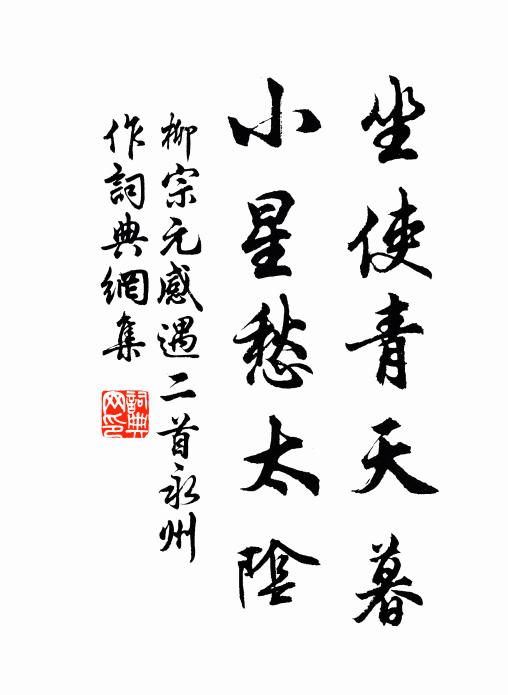 坐使青天暮
小星愁太陰
柳宗元感遇二首永州
作詞典網集
詞典网印